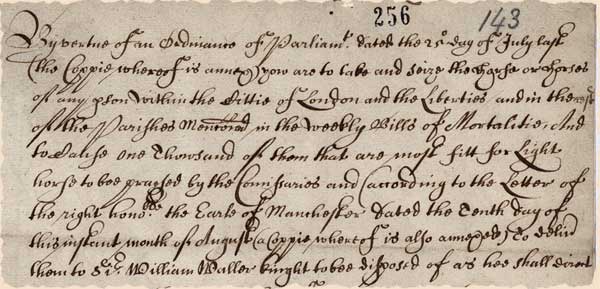 256 143
By vertue of an Ordinance of Parliamt. dated the 25th day of July last
(the Coppie whereof is annexed) yow are to take and seize the horse or horses
of any pson within the Cittie of London and the Liberties and in the rest
of the Parishes Menconed in the weekly Bills of Mortalitie, And
to Cause One Thousand of them that are most fitt for Light
horse to bee praysed by the Comissaries and (according to the Letter of
the right honoble. the Earle of Manchester dated the Tenth day of
this instant month of August (a Coppie whereof is also annexed) To deliver
them to Sir. William Waller knight to bee disposed of as hee shall direct